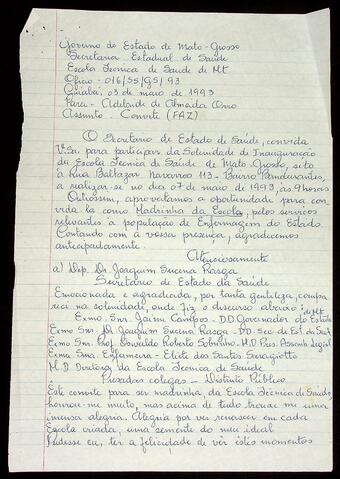 Governo do Estado de Mato-Grosso
Secretaria Estadual de Saúde
Escola Técnica de Saúde de Mt
Oficio - 016/SS/GS/93
Cuiabá, 03 de maio de 1993
Para - Adelaide de Almeida Orro
Assunto - Convite (FAZ)
O Secretario de Estado de Saúde, convida
Vª Sa. para participar da Solenidade de Inauguração
da Escola Técnica de Saúde de Mato-Grosso, sito
à Rua Baltazar Navarros 113 - Bairro Bandeirantes,
a realizar-se no dia 07 de maio de 1993, às 9 horas
Outrossim, aproveitamos a oportunidade para con
vida-la como Madrinha da Escola, pelos serviços
relevantes à população de Enfermagem do Estado
Contando com a vossa presença, agradecemos
antecipadamente.
Atenciosamente
a) Dep. Dr. Joaquim Sucena Rasga
Secretário de Estado da Saúde
Emocionada e agradecida, por tanta gentileza, compa
reci na solenidade, onde fiz o discurso abaixo:
Exmo. Snr. Jaime Campos - DD Governador do Estado de Mt
Exmo Snr. Dr Joaquim Sucena Rasga - DD Sec. de Est. da Saúde
Exmo Snr. Prof. Oswaldo Roberto Sobrinho - M.D Pres. Assemb Legisl
Exma Sma. Enfermeira - Elite dos Santos
M.D Diretora da Escola Técnica de Saúde
Prezados colegas - Distinto Público
Este convite para ser madrinha, da Escola Técnica de Saúde,
honrou-me muito, mas acima de tudo, trouxe-me uma
imensa alegria. Alegria por ver renascer em cada
Escola criada, uma semente do meu ideal
Pudesse eu, ter a felicidade de vêr êstes momentos
1